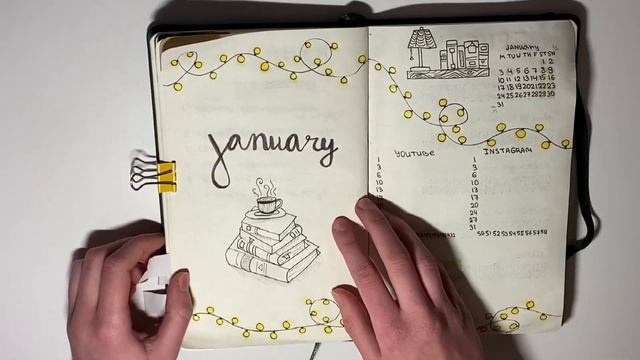 january
JANUARY
M TU W TH F ST SN
1 2
3 4 5 6 7 8 9
10 11 12 13 14 15 16
17 18 19 20 21 22 23
24 25 26 27 28 29 30
31
YOUTUBE
1
3
6
10
13
INSTAGRAM
1
3
6
10
13
17
20
24
27
31
50 51 52 53 54 55 56 57 58